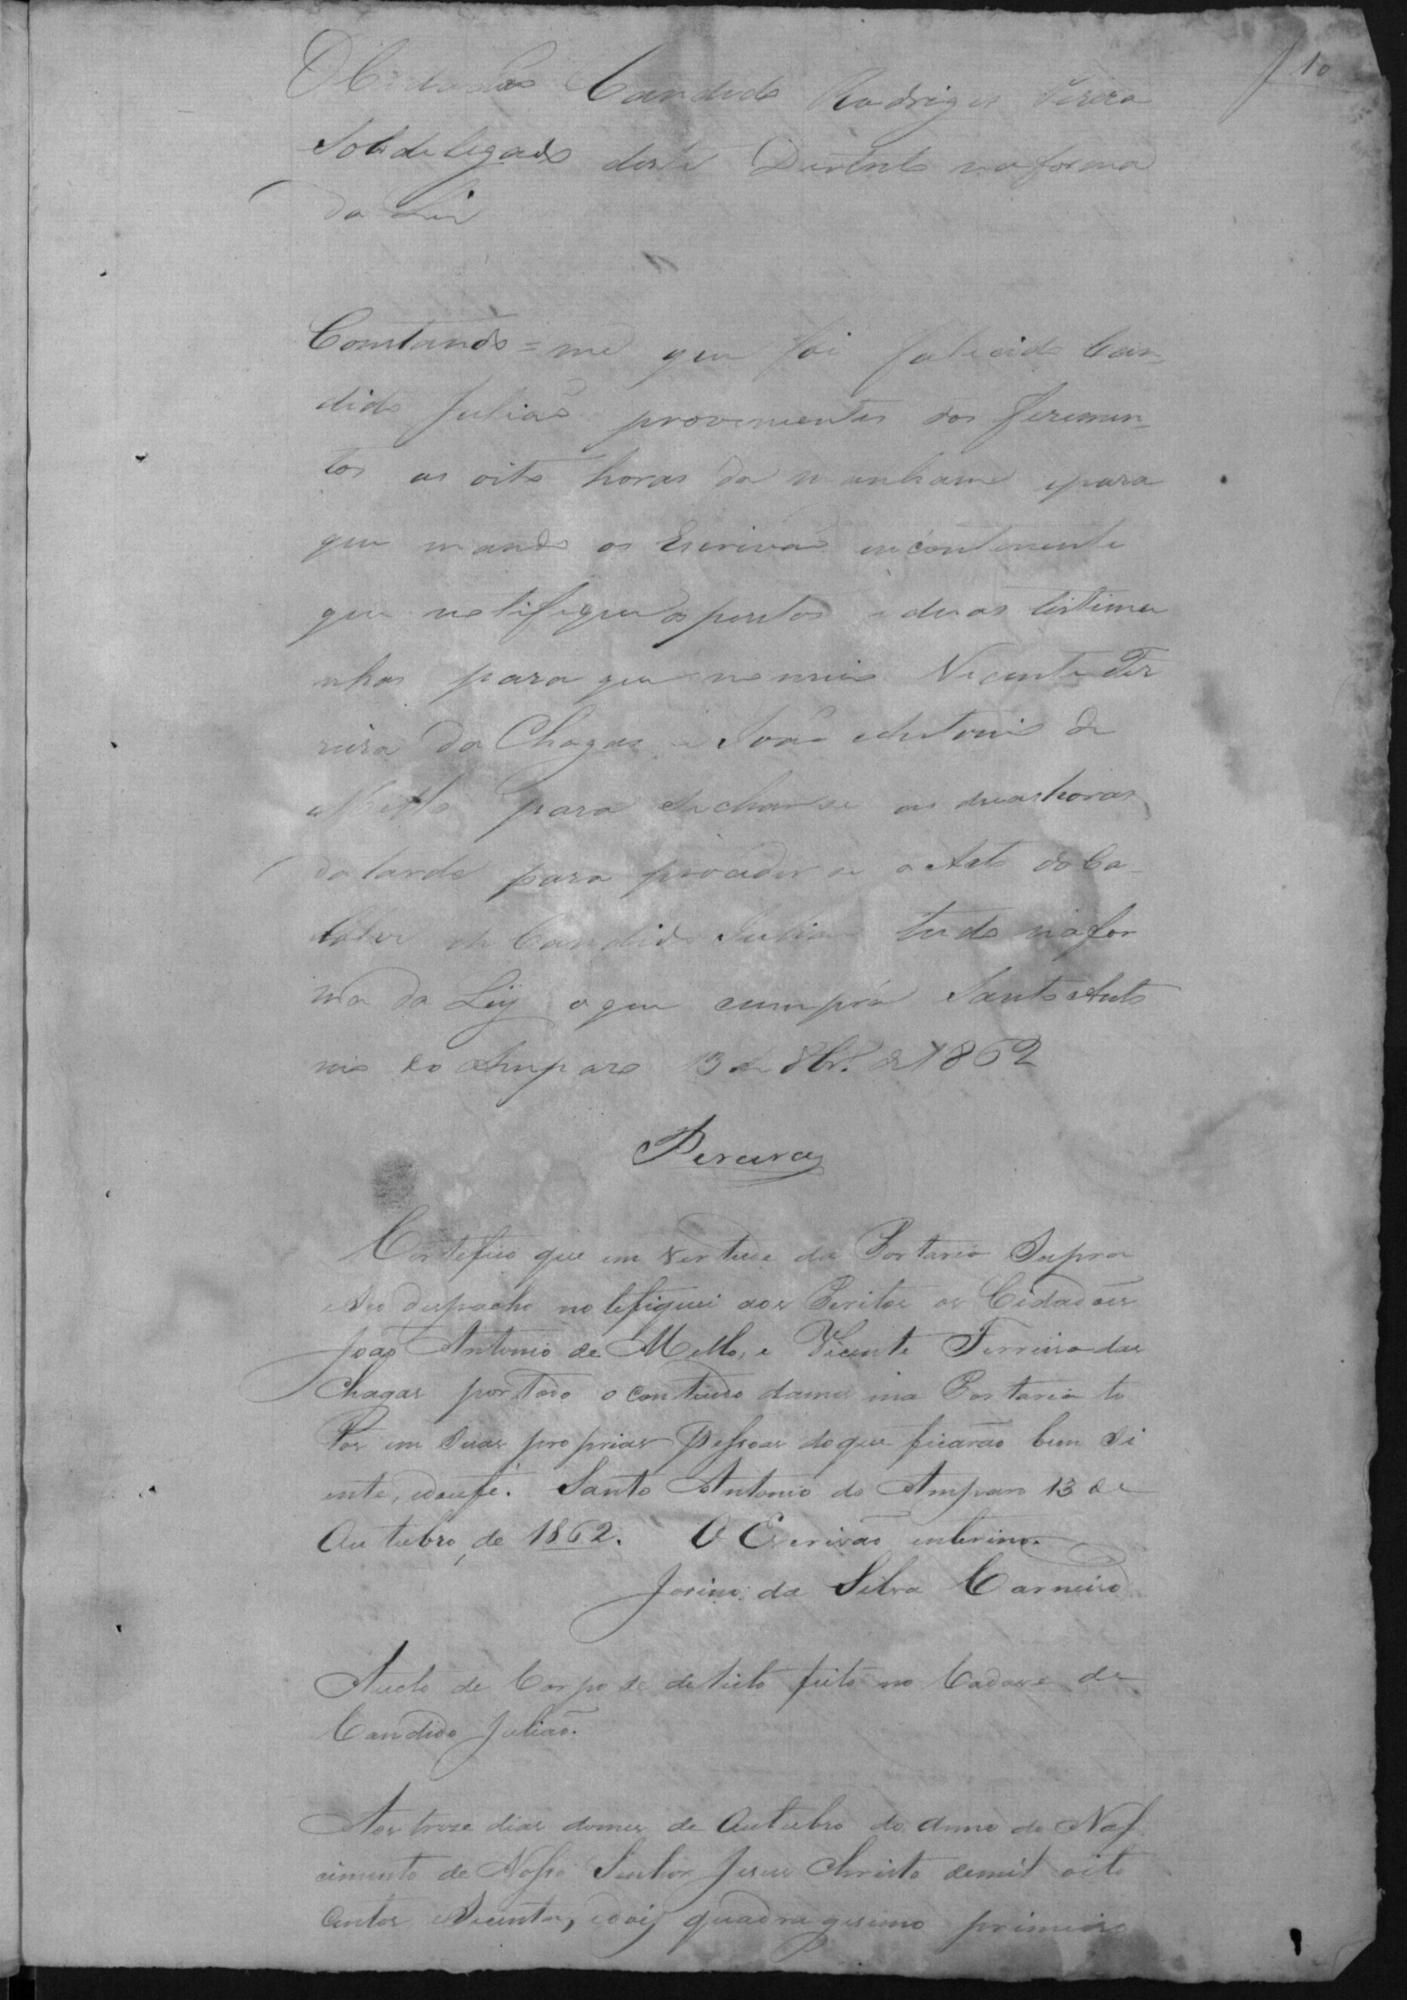 10
O Cidadão Candido Rodrigues Pereira
Sobdelegado deste Destrito na forma
da Lei
Constando=me que foi falecido Can-
dido Julião provenientes dos ferimen-
tos as oito horas da manhame epara
que mando os Escrivão incontinente
que notifique os peritos e duas testimu
nhas para que nomeio Vicente Fer
reira da Chagas e João Antonio de
Mello para achar se as duas horas
da tarde para proceder se o Auto do Ca-
daver de Candido Julião tudo na for
ma da Ley o que cumpra Santo Anto
nio do Amparo 13 de 8br.º de 1862
Pereira
Certefico que em vertude da Portaria Supra
e seo despacho notefiquei aos Peritos os Cidadões
João Antonio de Mello, e Vicente Ferreira das
Chagas por todo o contiudo damesma Portaria to
dos em suas proprias Pessoas do que ficarão bem si
ente, edoufé. Santo Antonio do Amparo 13 de
Outubro, de 1862. O Escrivão interino.
Josino da Silva Carneiro
Aucto de Corpo de delicto feito no Cadave de
Candido Julião.
Aos treze dias domes de Outubro do Anno do Nas
cimento de Nosso Senhor Jesus Christo demil oito
centos esecenta, edois quadragesimo primeiro